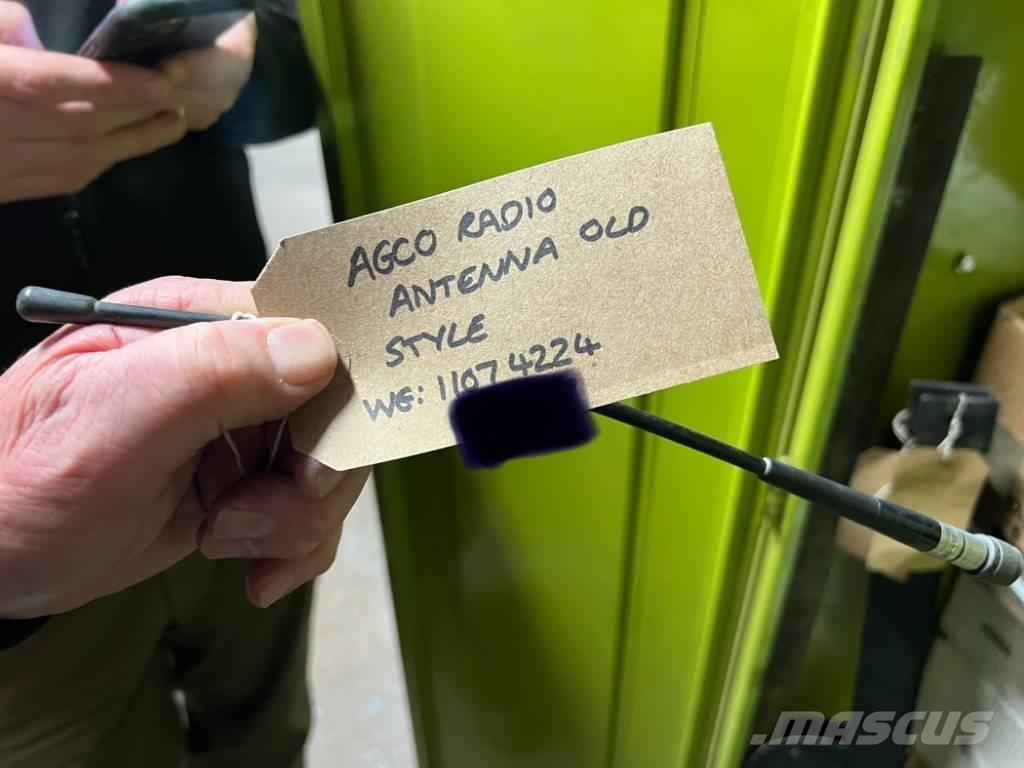 AGCO RADIO
ANTENNA OLD
STYLE
WE: 11074224
MASCUS